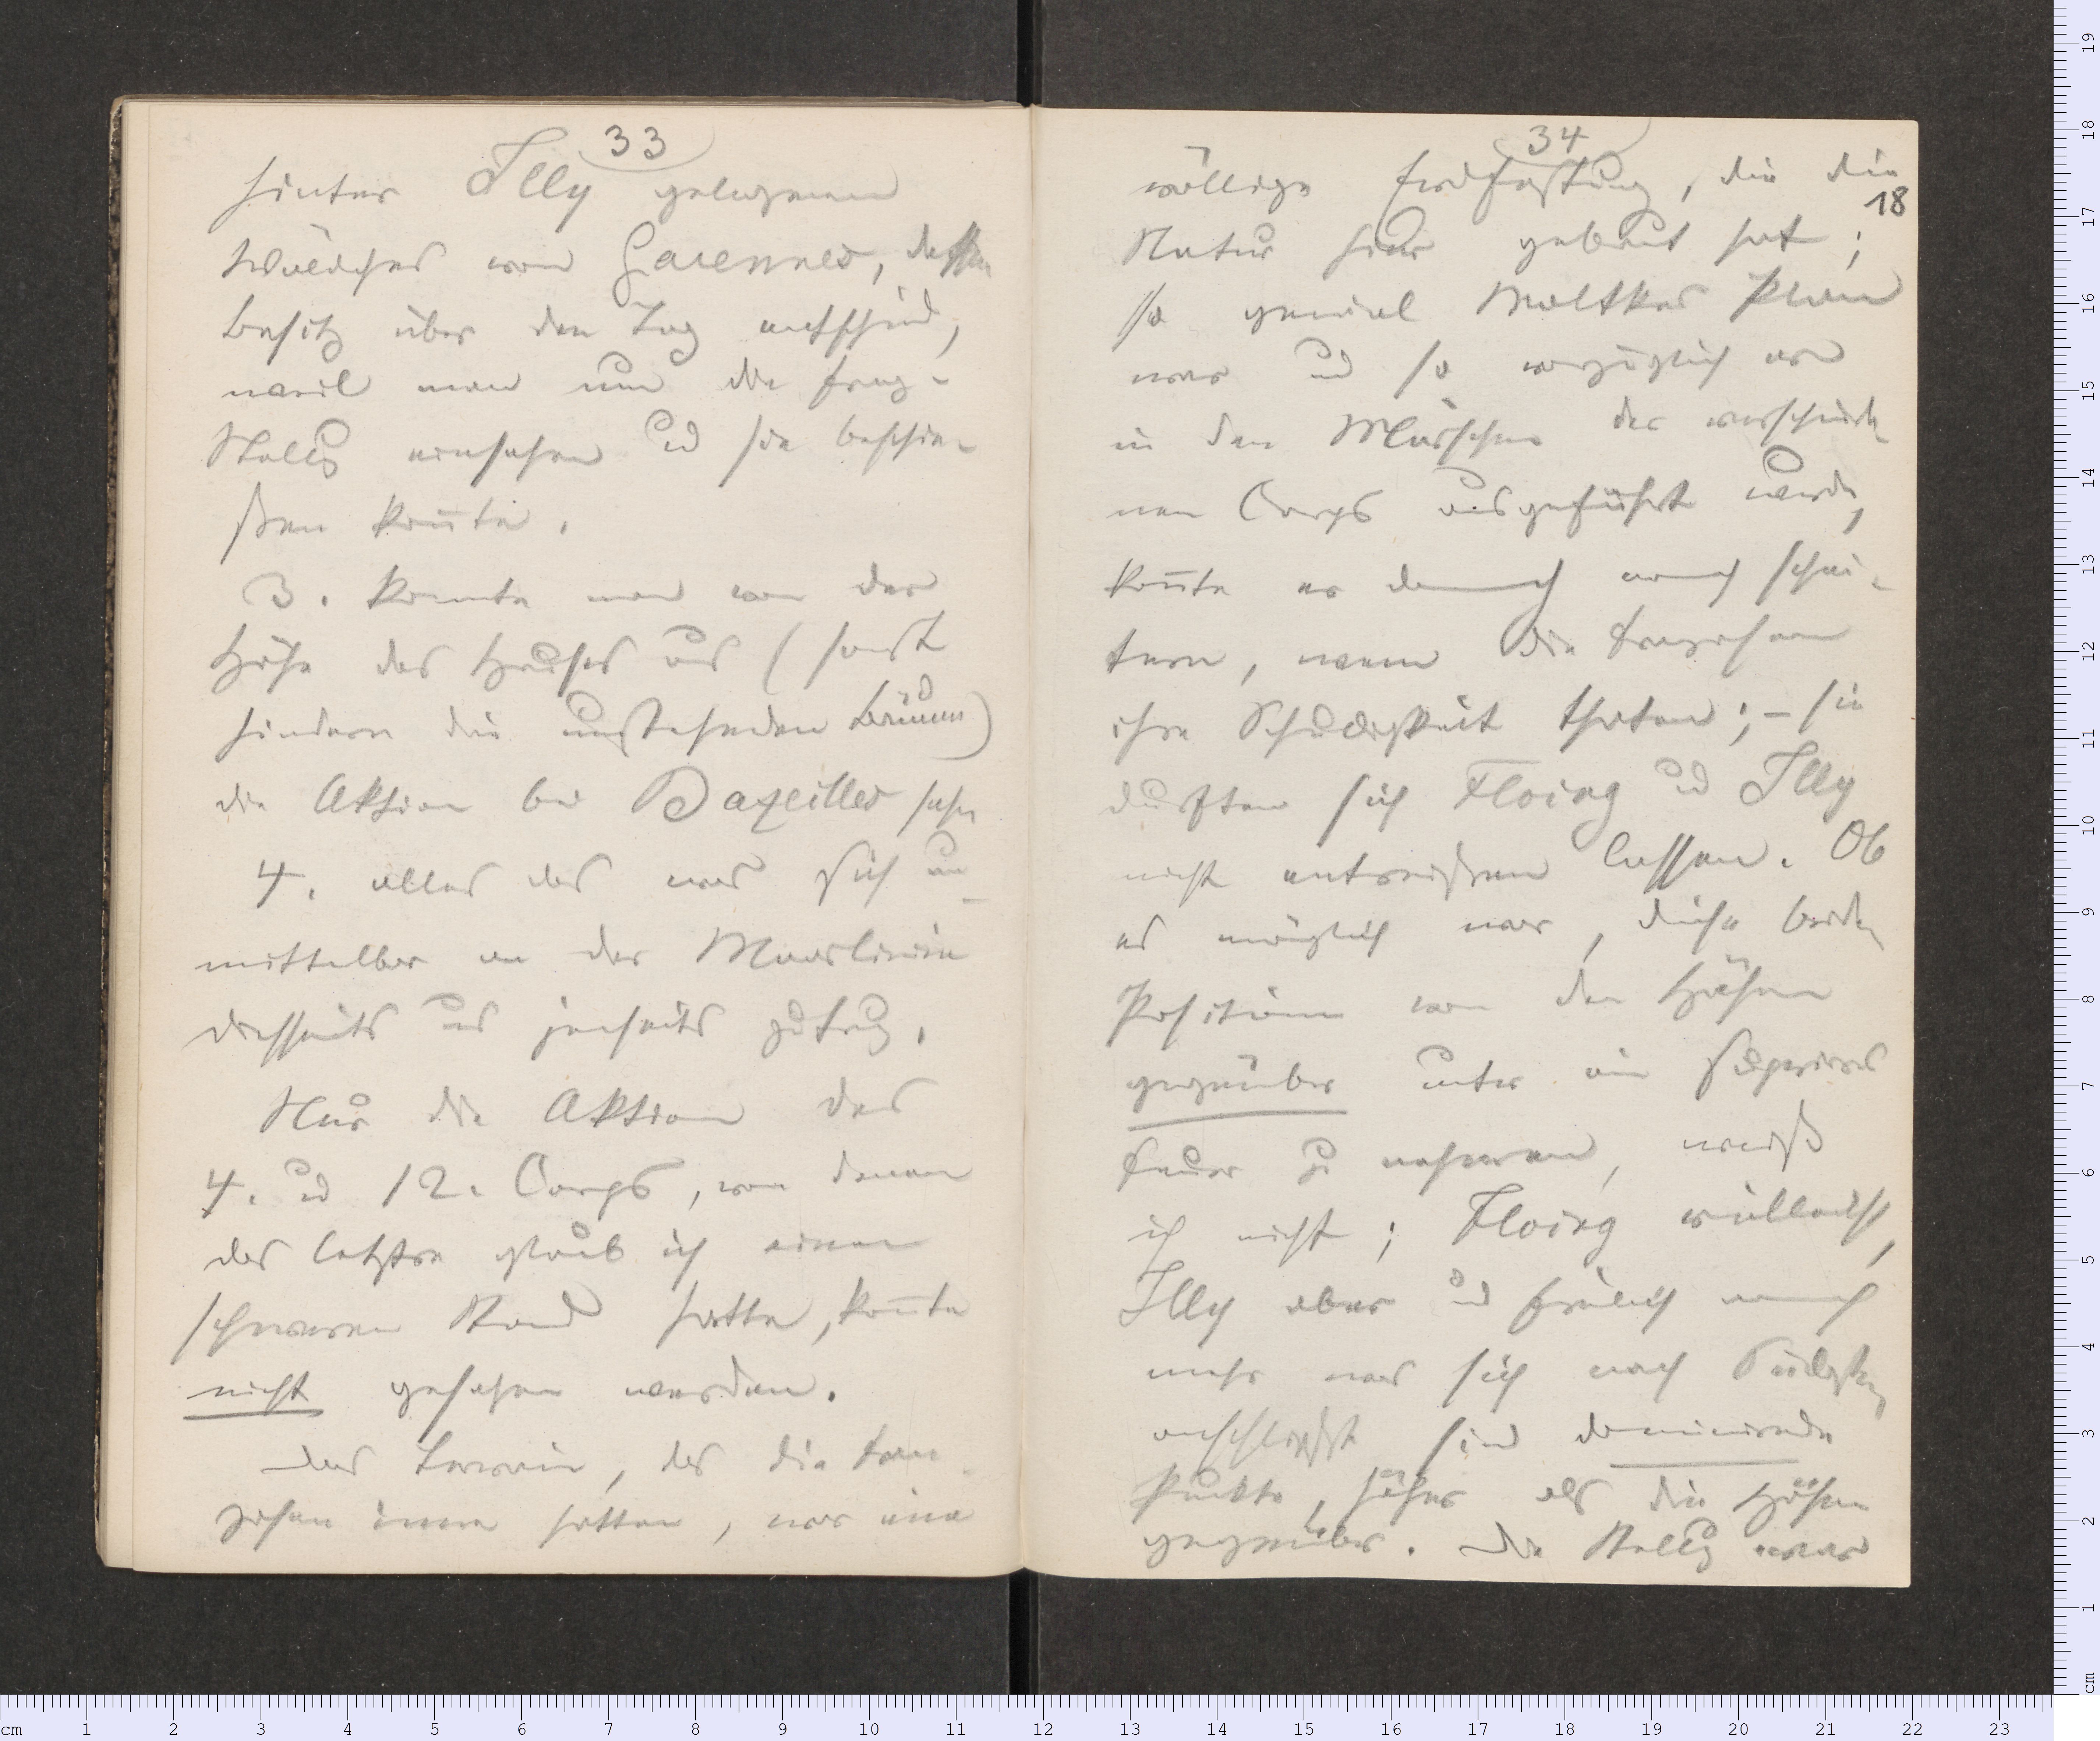 33
hinter Illy gelegenen
Wäldches von Garennes, dessen
Besitz über den Tag entschied,
weil man nun die franz.
Stellg einsehen ud sie beschie-
ßen kon̄te.
3. konnte man von der
Höhe des Hauses aus (sonst
hindern die umstehenden Bäume)
die Aktion bei Bazeilles sehn
4. alles das was sich un-
mittelbar an der Maaslinie
diesseits und jenseits zutrug.
Nur die Aktion des
4. ud 12. Corps, von denen
das letztre glaub ich einen
schweren Stand hatte, kon̄te
nicht gesehen werden.
Das Terrain, das die Fran-
zosen inne hatten, war eine
34
18
völlige Erdfestung, die die
Natur hier gebaut hat;
so genial Moltkes Plan
war ud so vorzüglich er
in den Märschen der verschiede-
nen Corps ausgeführt wurde,
kon̄te er dennoch noch schei-
tern, wenn die Franzosen
ihre Schuldigkeit thaten; – sie
durften sich Floing ud Illy
nicht entreißen lassen. Ob
es möglich war, diese beiden
Positionen von den Höhen
gegenüber unter ein superiores
Feuer zu nehmen, weiß
ich nicht; Floing vielleicht,
Illy aber ud freilich noch
mehr was sich nach Südosten
anschließt sind dominirende
Punkte, höher als die Höhen
gegenüber. Die Stellg war